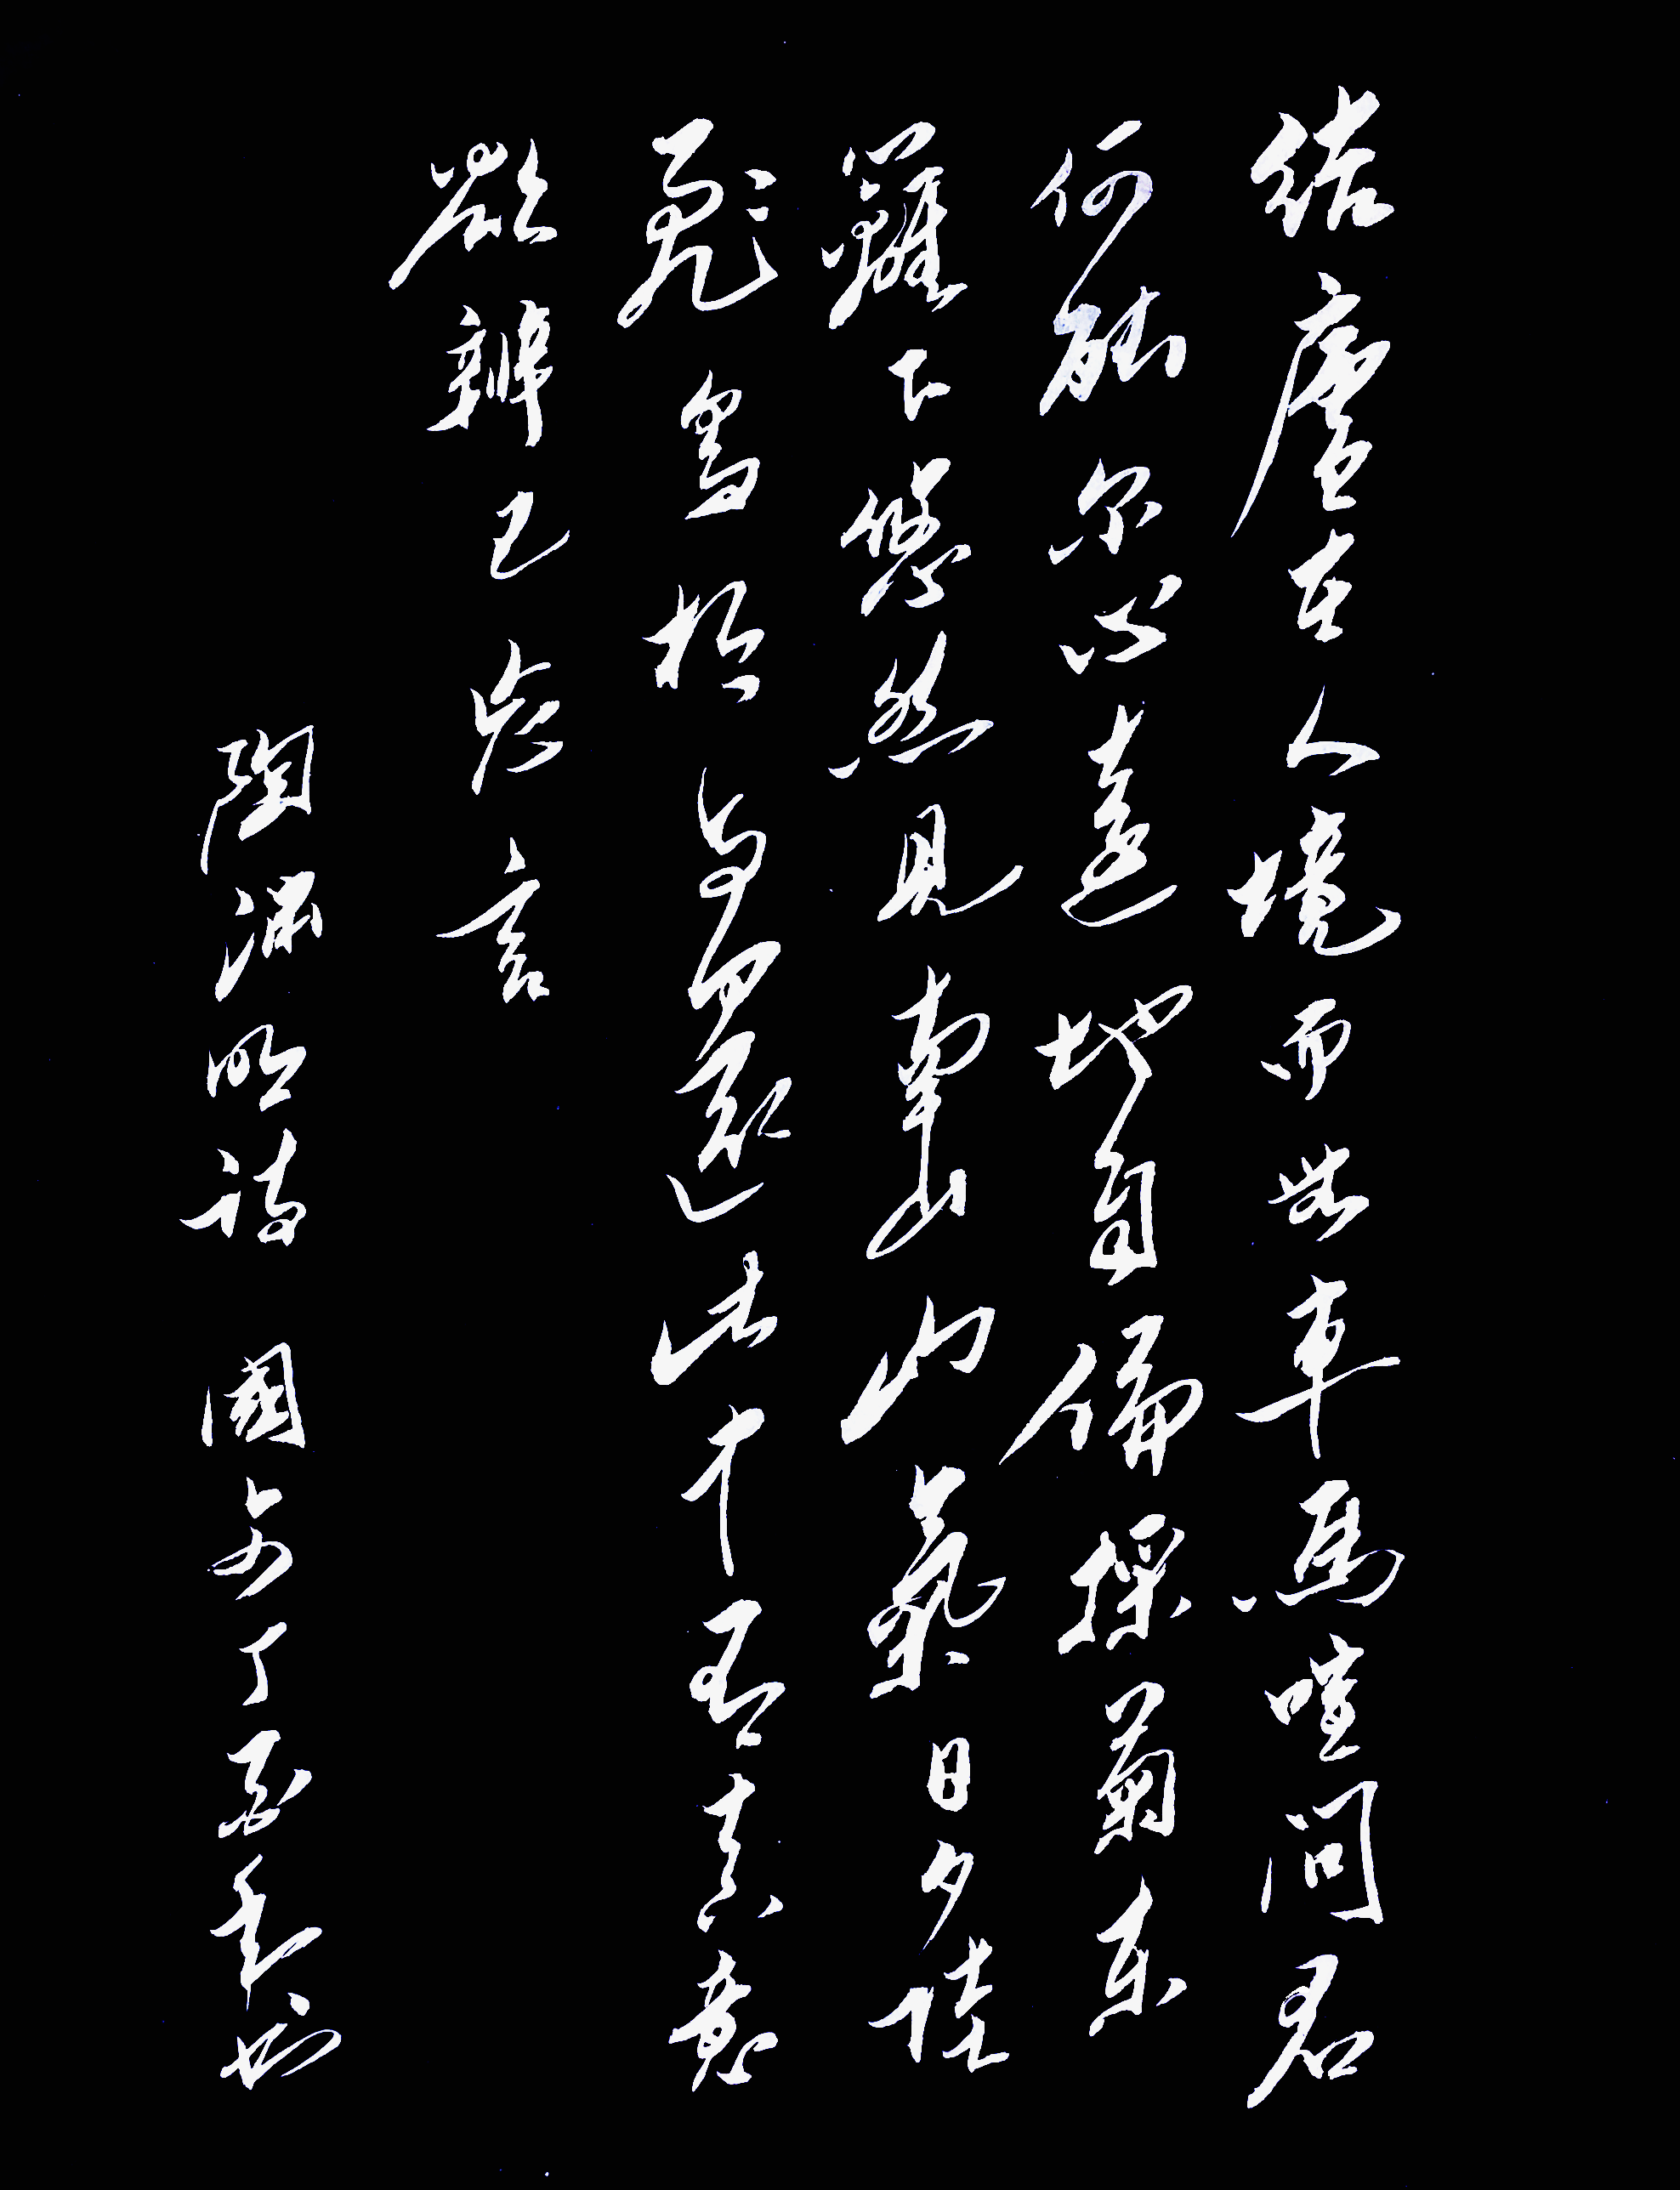 結廬在人境而無車馬喧問君
何能尔心遠地自偏採菊東
籬下悠然見南山山氣日夕佳
飛鳥相與還此中有真意
欲辨已忘言
陶渊明詩 國安丁亥